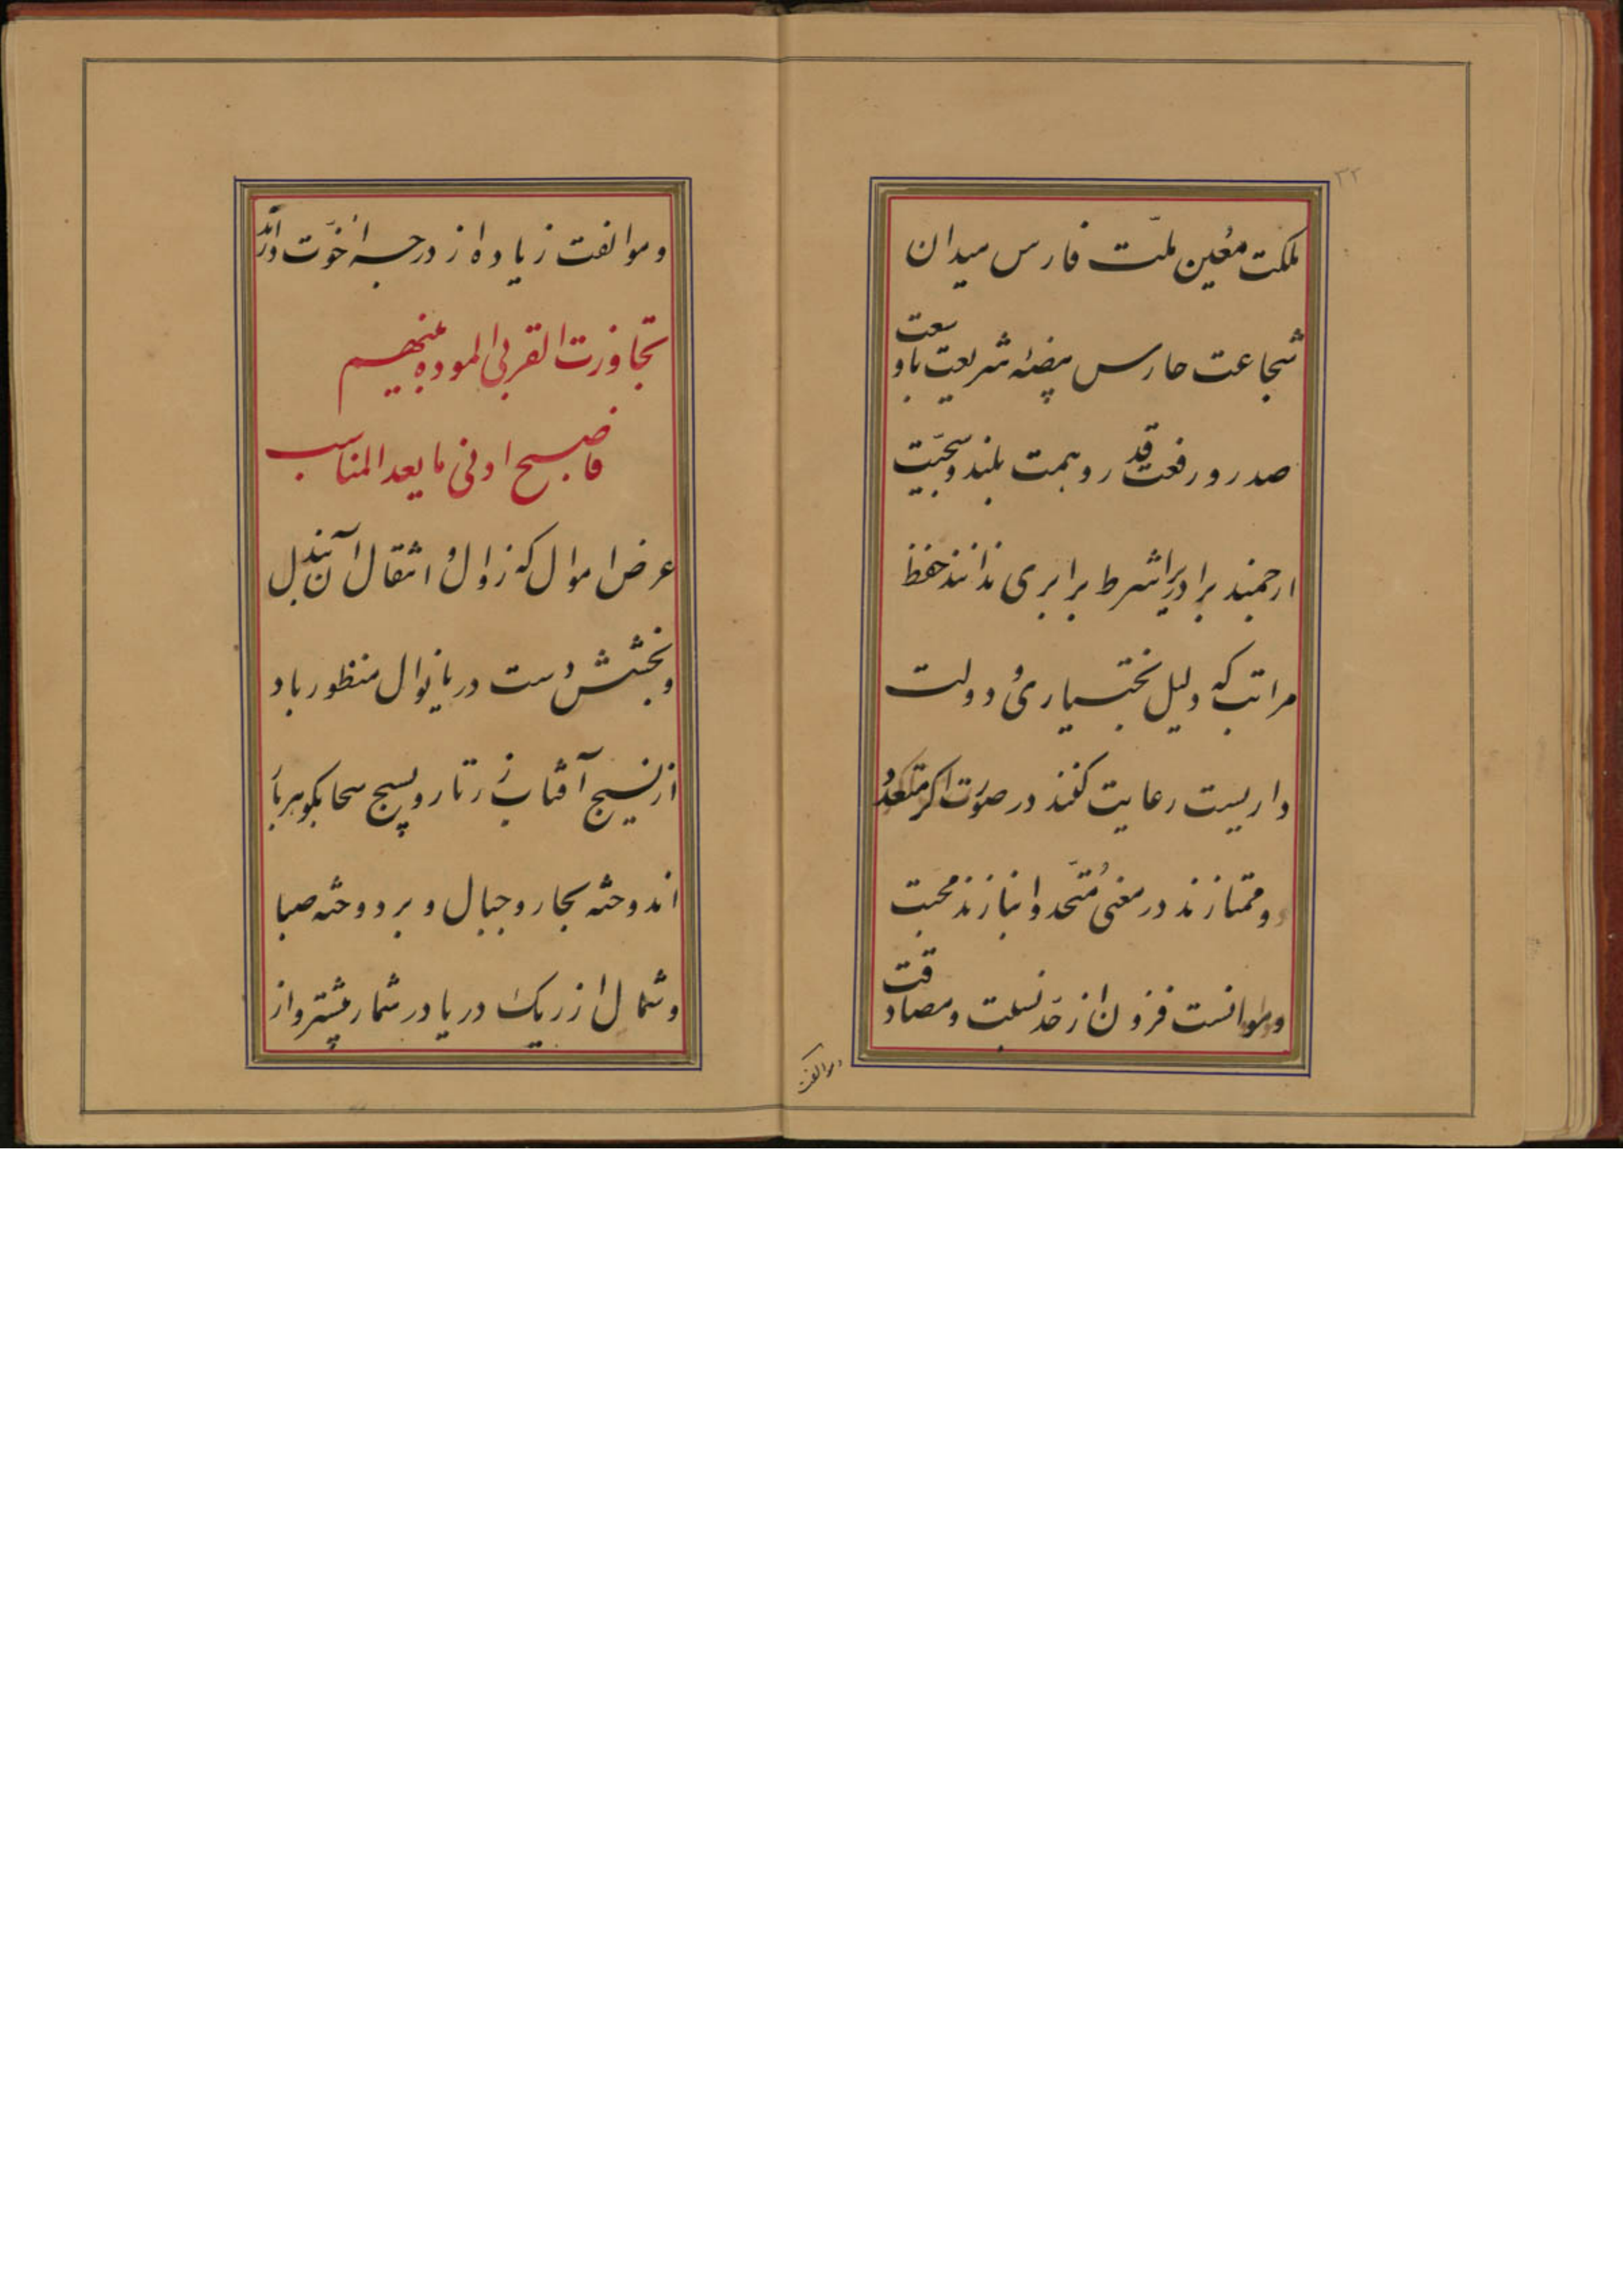 ۳۲
ملکت مُعین ملّت فارس میدان
شجاعت حارس بیضهٔ شریعت باوسعت
صدر و رفعت قدر و همت بلند و سجیّت
ارجمند برادریرا شرط برابری ندانند حفظ
مراتب که دلیل بختیاری و دولت
داریست رعایت کنند در صورت اکر متعدد
و ممتازند در معنی مُتّحد و انبازند محبت
و موانست فزون از حّد نسبت و مصادقت
و موالفت
و موالفت زیاده از درجهٔ اخوّت دارند
تجاوزت القربی الموده بینهم
فاصبح ادنی ما یعد المناسب
عرض اموال که زوال و انتقال آن ببذل
و بخشش دست دریا نوال منظور باد
از نسیج آفتاب زرتار و بسیج سحاب کوهربار
اندوخته بحار و جبال و بردوخته صبا
و شمال از ریک دریا در شمار بیشتر و از